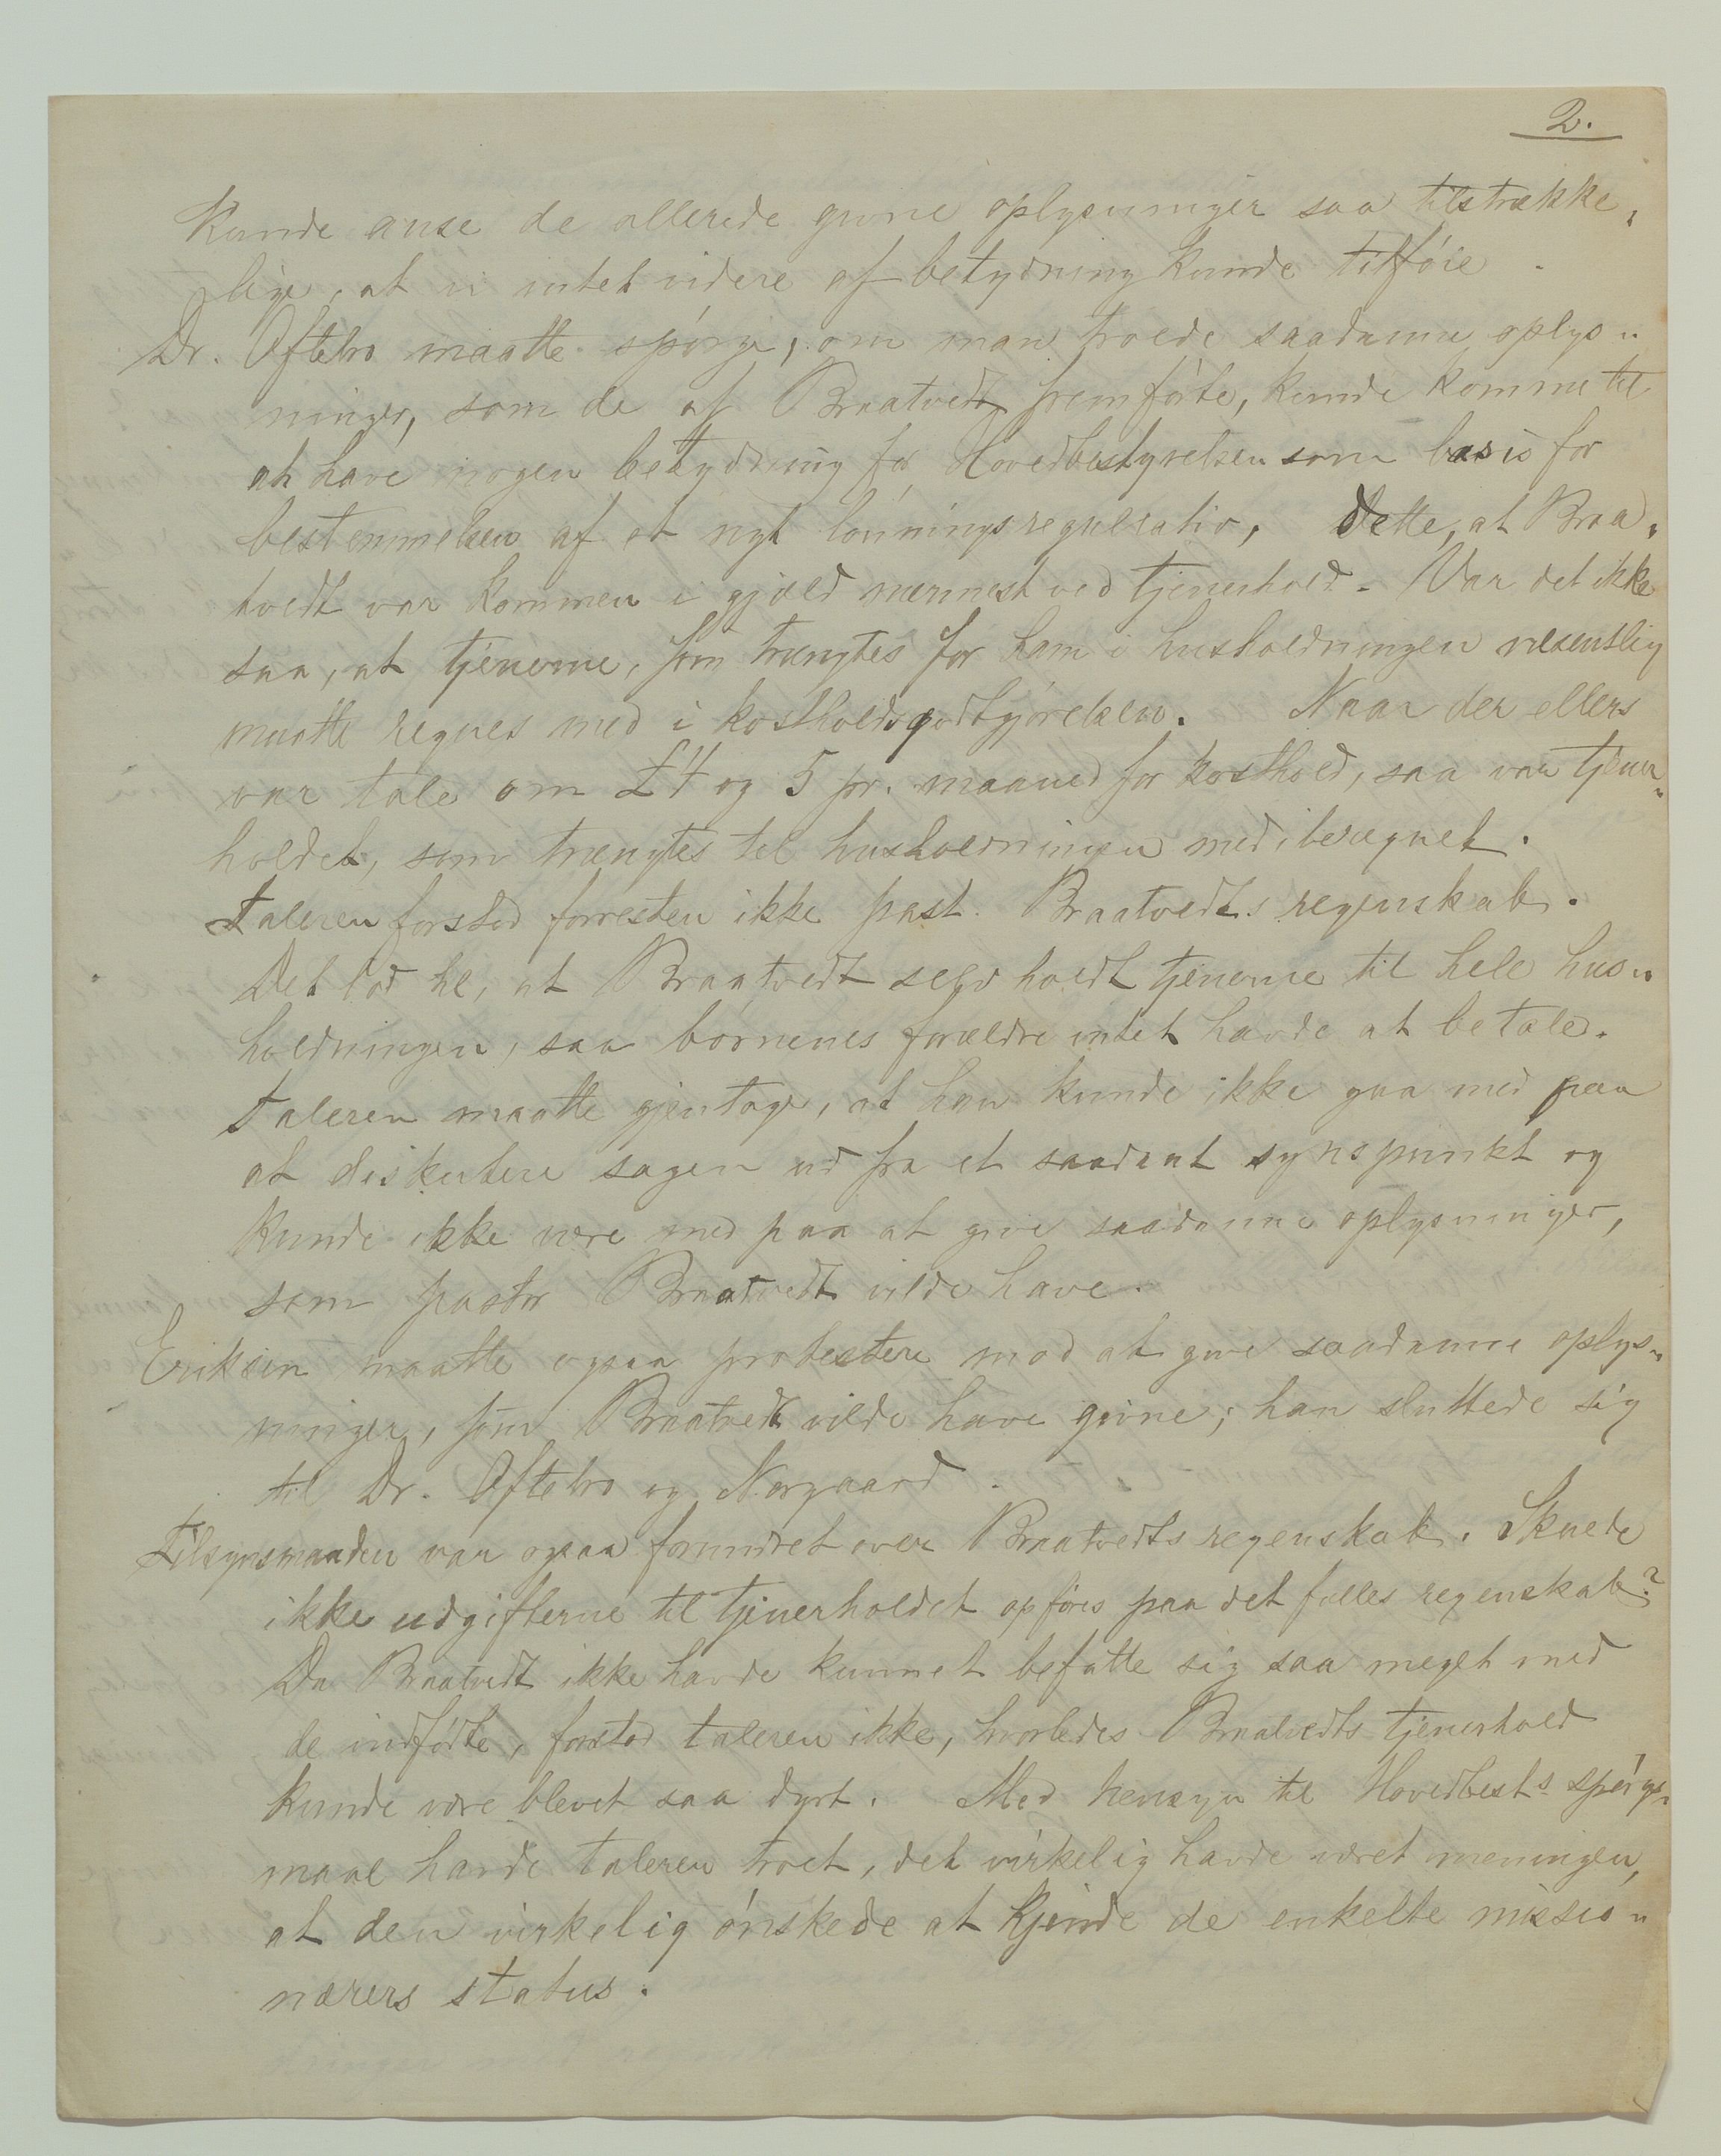 2.
Kunde anse de allerede givne oplysninger saa tilstrække„
lige, at vi intet videre af betydning kunde tilföie.
Dr. Oftebro maatte spörge, om man troede saadanne oplys„
ninger, som de af Braatvedt fremförte, kunde komme til
at have nogen betydning for Hovedbestyrelsen som basis for
bestemmelsen af et nyt lönningsregulativ, Dette, at Braa„
tvedt var kommen i gjæld nærmest ved tjenerhold. Var det ikke
saa, at tjenerne, som trængtes for ham i husholdningen væsentlig
maatte regnes med i kostholdsgodtgjörelsen. Naar der ellers
var tale om £4 og 5 pr. maaned for kosthold, saa var tjener„
holdet, som trængtes til husholdningen mediberegnet.
Taleren forstod forresten ikke past. Braatvedts regenskab.
Det lod til, at Braatvedt selv holdt tjenerne til hele hus„
holdningen, saa börnenes forældre intet havde at betale.
Taleren maatte gjentage, at han kunde ikke gaa med paa
at diskutere sagen ud fra et saadant synspunkt og
kunde ikke være med paa at give saadanne oplysninger,
som pastor Braatvedt vilde have.
Eriksen maatte ogsaa protestere mod at give saadanne oplys„
ninger, som Braatvedt vilde have givne; han sluttede sig
til Dr. Oftebro og Norgaard.
Tilsynsmanden var ogsaa forundret over Braatvedts regenskab. Skulde
ikke udgifterne til tjenerholdet opföres paa det fælles regenskab?
Da Braatvedt ikke havde kunnet befatte sig saa meget med
de indfödte, forstod taleren ikke, hvorledes Braatvedts tjenerhold
kunde være blevet saa dyrt. Med hensyn til Hovedbest.s spörgs„
maal havde taleren troet, det virkelig havde været meningen,
at den virkelig önskede at kjende de enkelte missio„
nærers status.